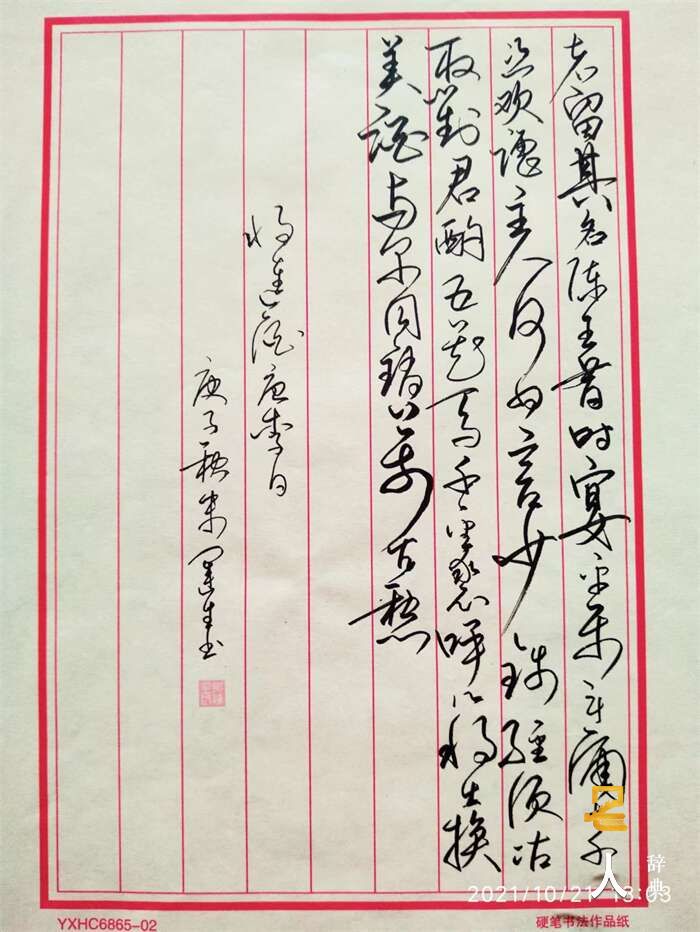 者留其名陈王昔时宴平乐斗酒十千
恣欢谑主人何为言少钱径须沽
取对君酌五花马千金裘呼儿将出换
美酒与尔同销万古愁
将进酒唐李白
庚子秋朱运生书
YXHC6865-02
硬笔书法作品纸
2021/10/21 13:03
名人
辞典